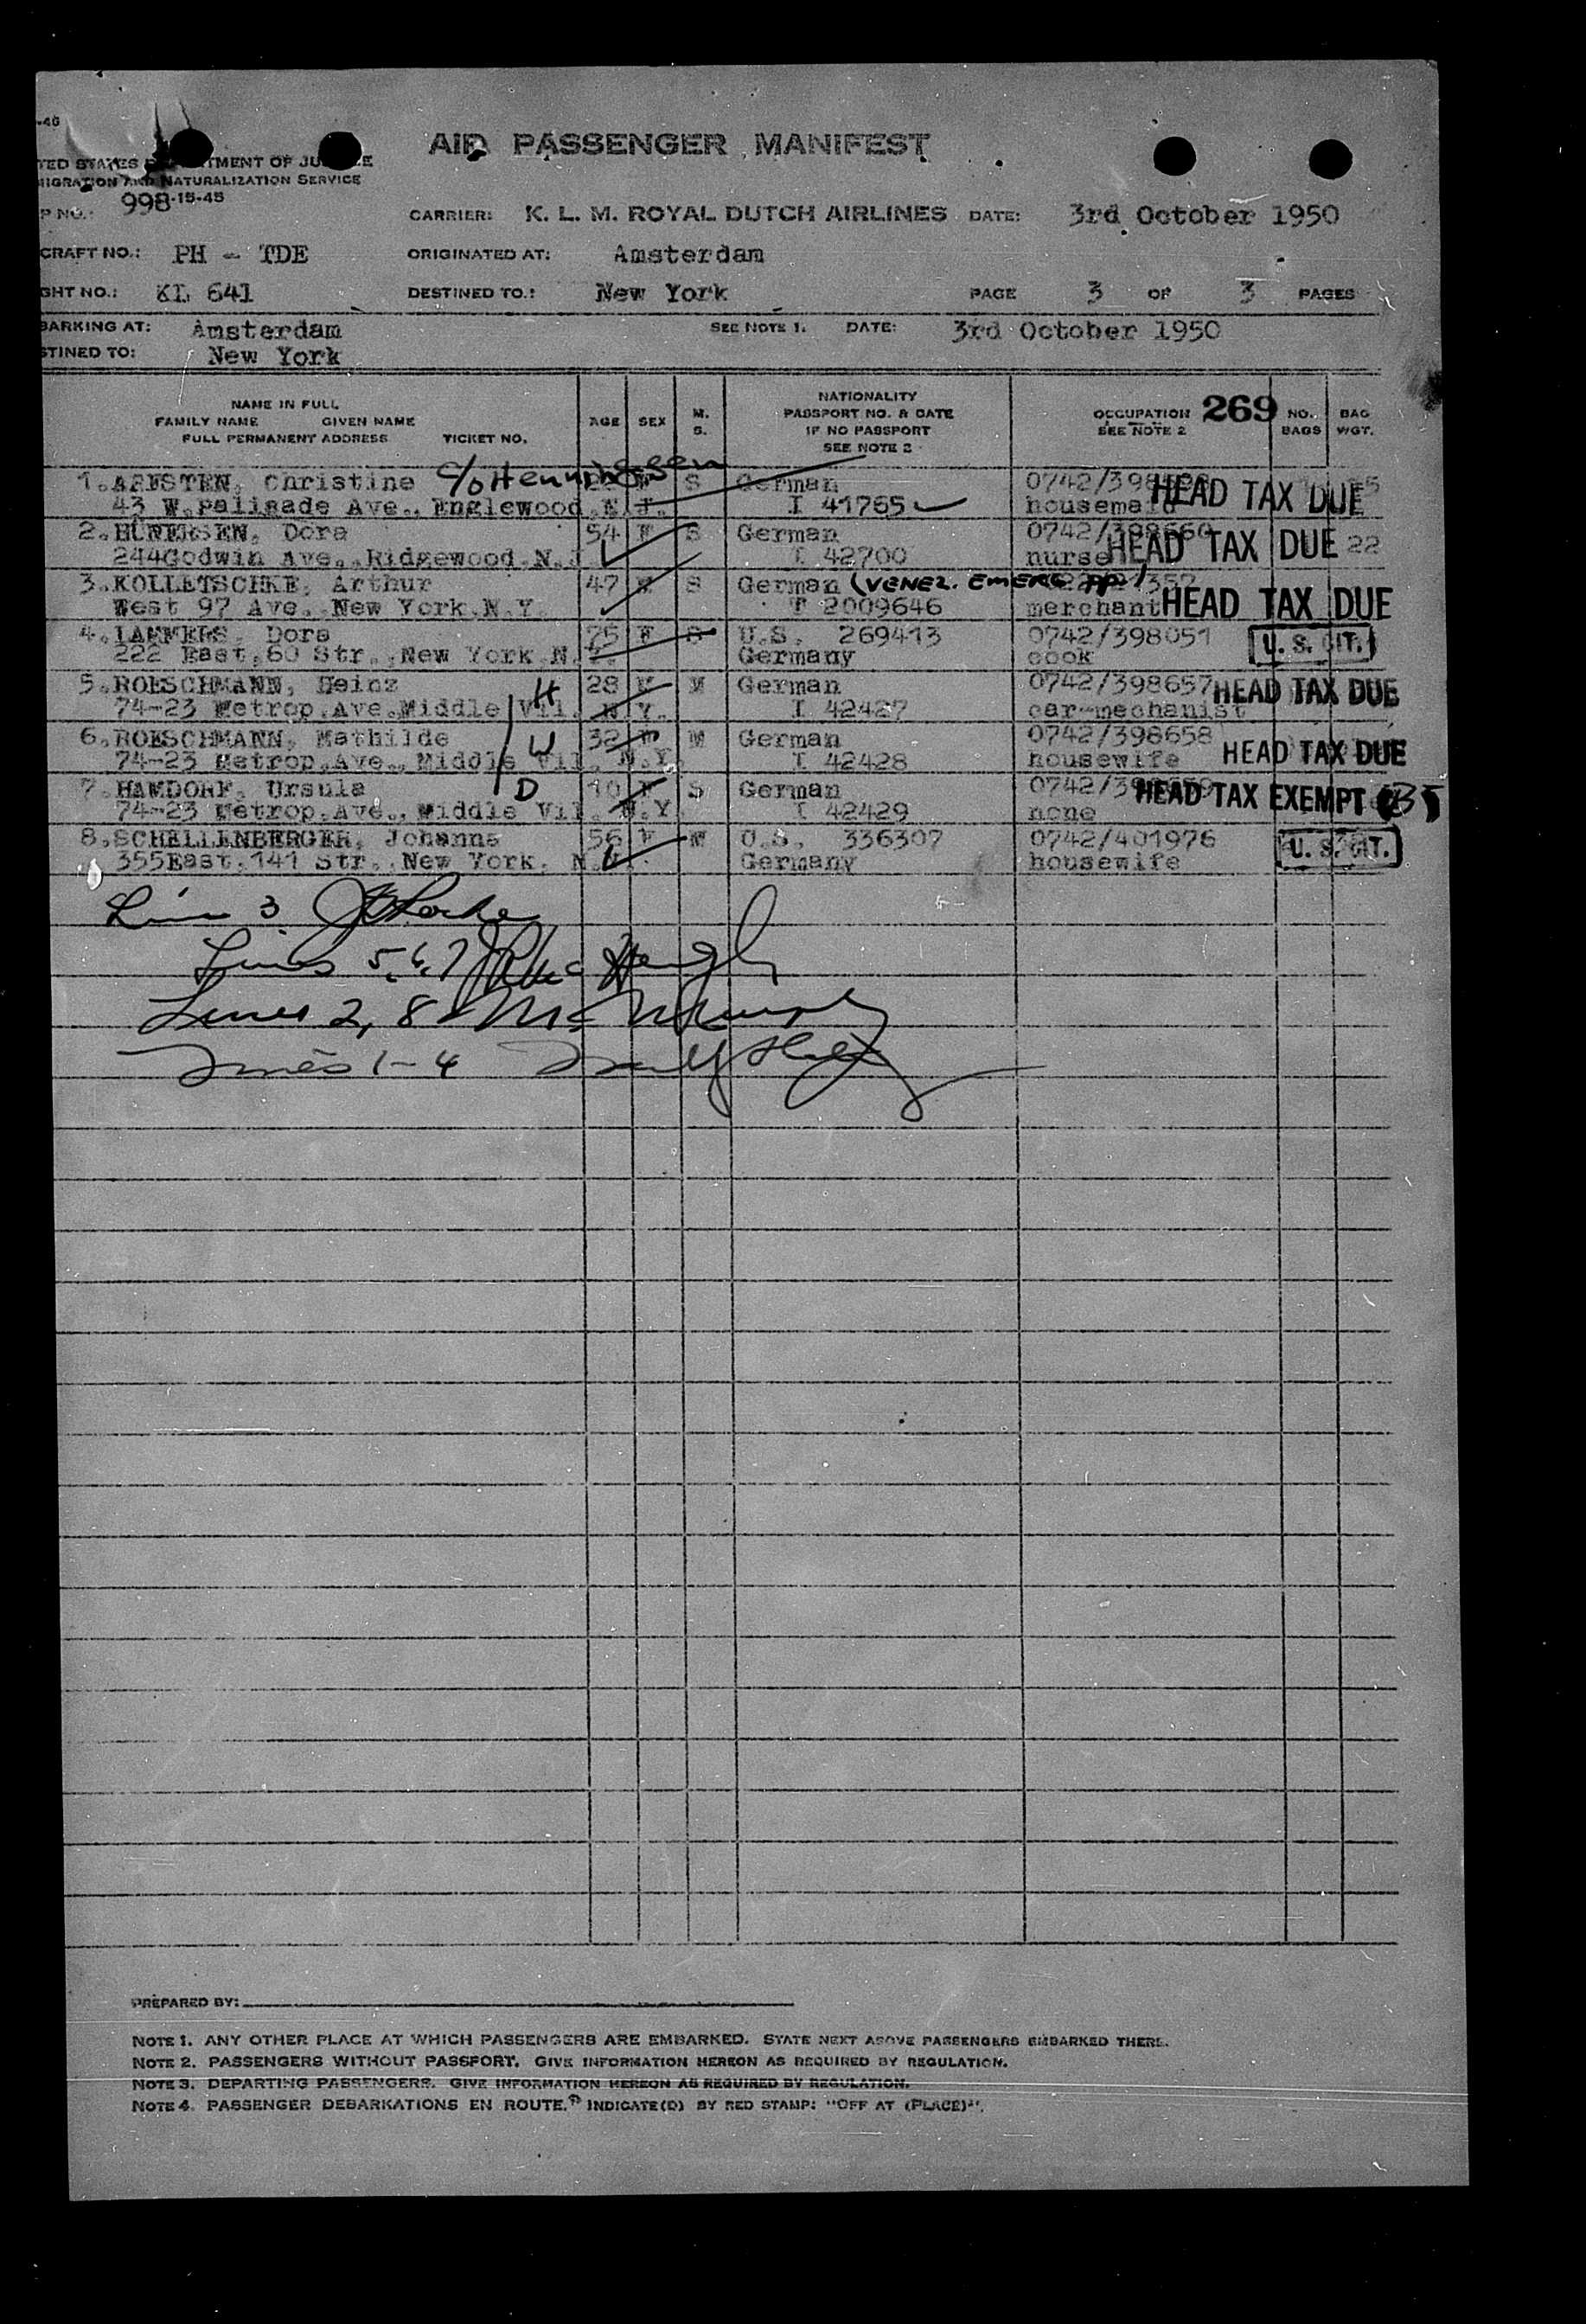 -46
AIR PASSENGER MANIFEST
TED STATES DEPARTMENT OF JUSTICE
MIGRATION AND NATURALIZATION SERVICE
998-15-45
P NO.: CARRIER: K. L. M. ROYAL DUTCH AIRLINES DATE: 3rd October 1950
CRAFT NO.: PH - TDE ORIGINATED AT: Amsterdam
GHT NO.: KL 641 DESTINED TO.: New York PAGE 3 OF 3 PAGES
BARKING AT: Amsterdam SEE NOTE 1. DATE: 3rd October 1950
STINED TO: New York
NAME IN FULL
FAMILY NAME GIVEN NAME
FULL PERMANENT ADDRESS TICKET NO.
AGE SEX M. S.
NATIONALITY
PASSPORT NO. & DATE
IF NO PASSPORT
SEE NOTE 2
OCCUPATION 269
SEE NOTE 2
NO. BAGS
BAG WGT.
1. Christine c/o S German 0742/398
43 W.Palisade Ave., Englewood.N.J. I 41765 housemaid HEAD TAX DUE
2. Dora 54 F S German 0742/398660
244Godwin Ave., Ridgewood.N.J I 42700 nurse HEAD TAX DUE 22
3.KOLLETSCHKE, Arthur 47 S German (VENEZ. EMERG.
West 97 Ave., New York.N.Y. 2009646 merchant HEAD TAX DUE
4.LAMMERS, Dora 75 F S U.S. 269413 0742/398051 U. S. CIT.
222 East.60 Str.,New York N. Germany cook
5.ROESCHMANN, Heinz H 28 M M German 0742/398657 HEAD TAX DUE
74-23 Metrop.Ave.Middle Vil. N.Y. I 42427 car-mechanist
6.ROESCHMANN, Mathilde W 32 F M German 0742/398658
74-23 Metrop.Ave., Middle Vil. N.Y. I 42428 housewife HEAD TAX DUE
7.HAMDORF, Ursula D 10 F S German HEAD TAX EXEMPT
74-23 Metrop.Ave., Middle Vil. N.Y I 42429 none
8.SCHELLENBERGER, Johanna 56 F M U.S. 336307 0742/401976
355East.141 Str., New York. N.Y. Germany housewife U. S. CIT.
Line 3
Lines 5.6.7
Lines 2, 8
Lines 1-4
PREPARED BY:
NOTE 1. ANY OTHER PLACE AT WHICH PASSENGERS ARE EMBARKED. STATE NEXT ABOVE PASSENGERS EMBARKED THERE.
NOTE 2. PASSENGERS WITHOUT PASSPORT. GIVE INFORMATION HEREON AS REQUIRED BY REGULATION.
NOTE 3. DEPARTING PASSENGERS. GIVE INFORMATION HEREON AS REQUIRED BY REGULATION.
NOTE 4. PASSENGER DEBARKATIONS EN ROUTE. INDICATE(D) BY RED STAMP: "OFF AT (PLACE)".